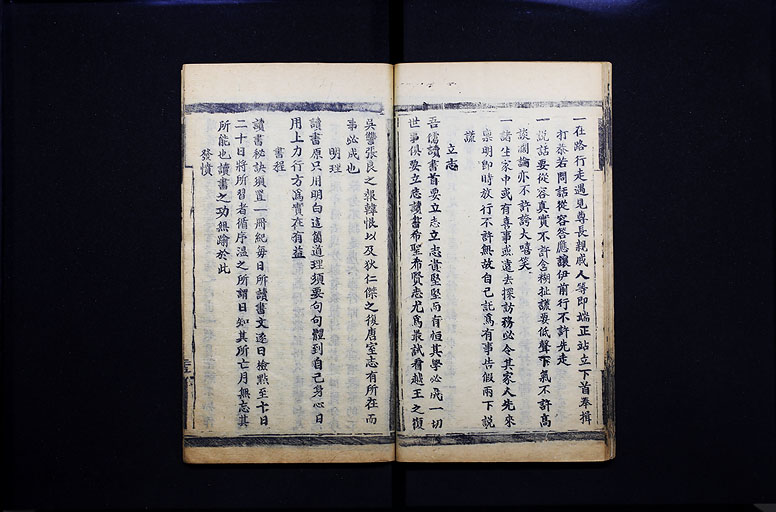 一在路行走遇見尊長親戚人等即端正站立下首奉揖
打恭若問話從容答應讓伊前行不許先走
一說話要從容真實不許含糊扯謊要低聲下氣不許高
談闊論亦不許誇大嘻笑
一諸生家中或有喜事或遠去探訪務必令其家人先來
稟明即時放行不許無故自己託為有事告假兩下說
謊
立志
吾儕讀書首要立志立志貴堅堅而有恒其學必成一切
世事俱要立志讀書希聖希賢志尤為最試看越王之復
吳讐張良之報韓恨以及狄仁傑之復唐室志有所在而
事必成也
明理
讀書原只用明白這箇道理須要句句體到自己身心日
用上力行方為實在有益
書程
讀書秘訣須置一冊紀每日所讀書文逐日檢點至十日
二十日將所習者循序溫之所謂日知其所亡月無忘其
所能也讀書之功無踰於此
發憤